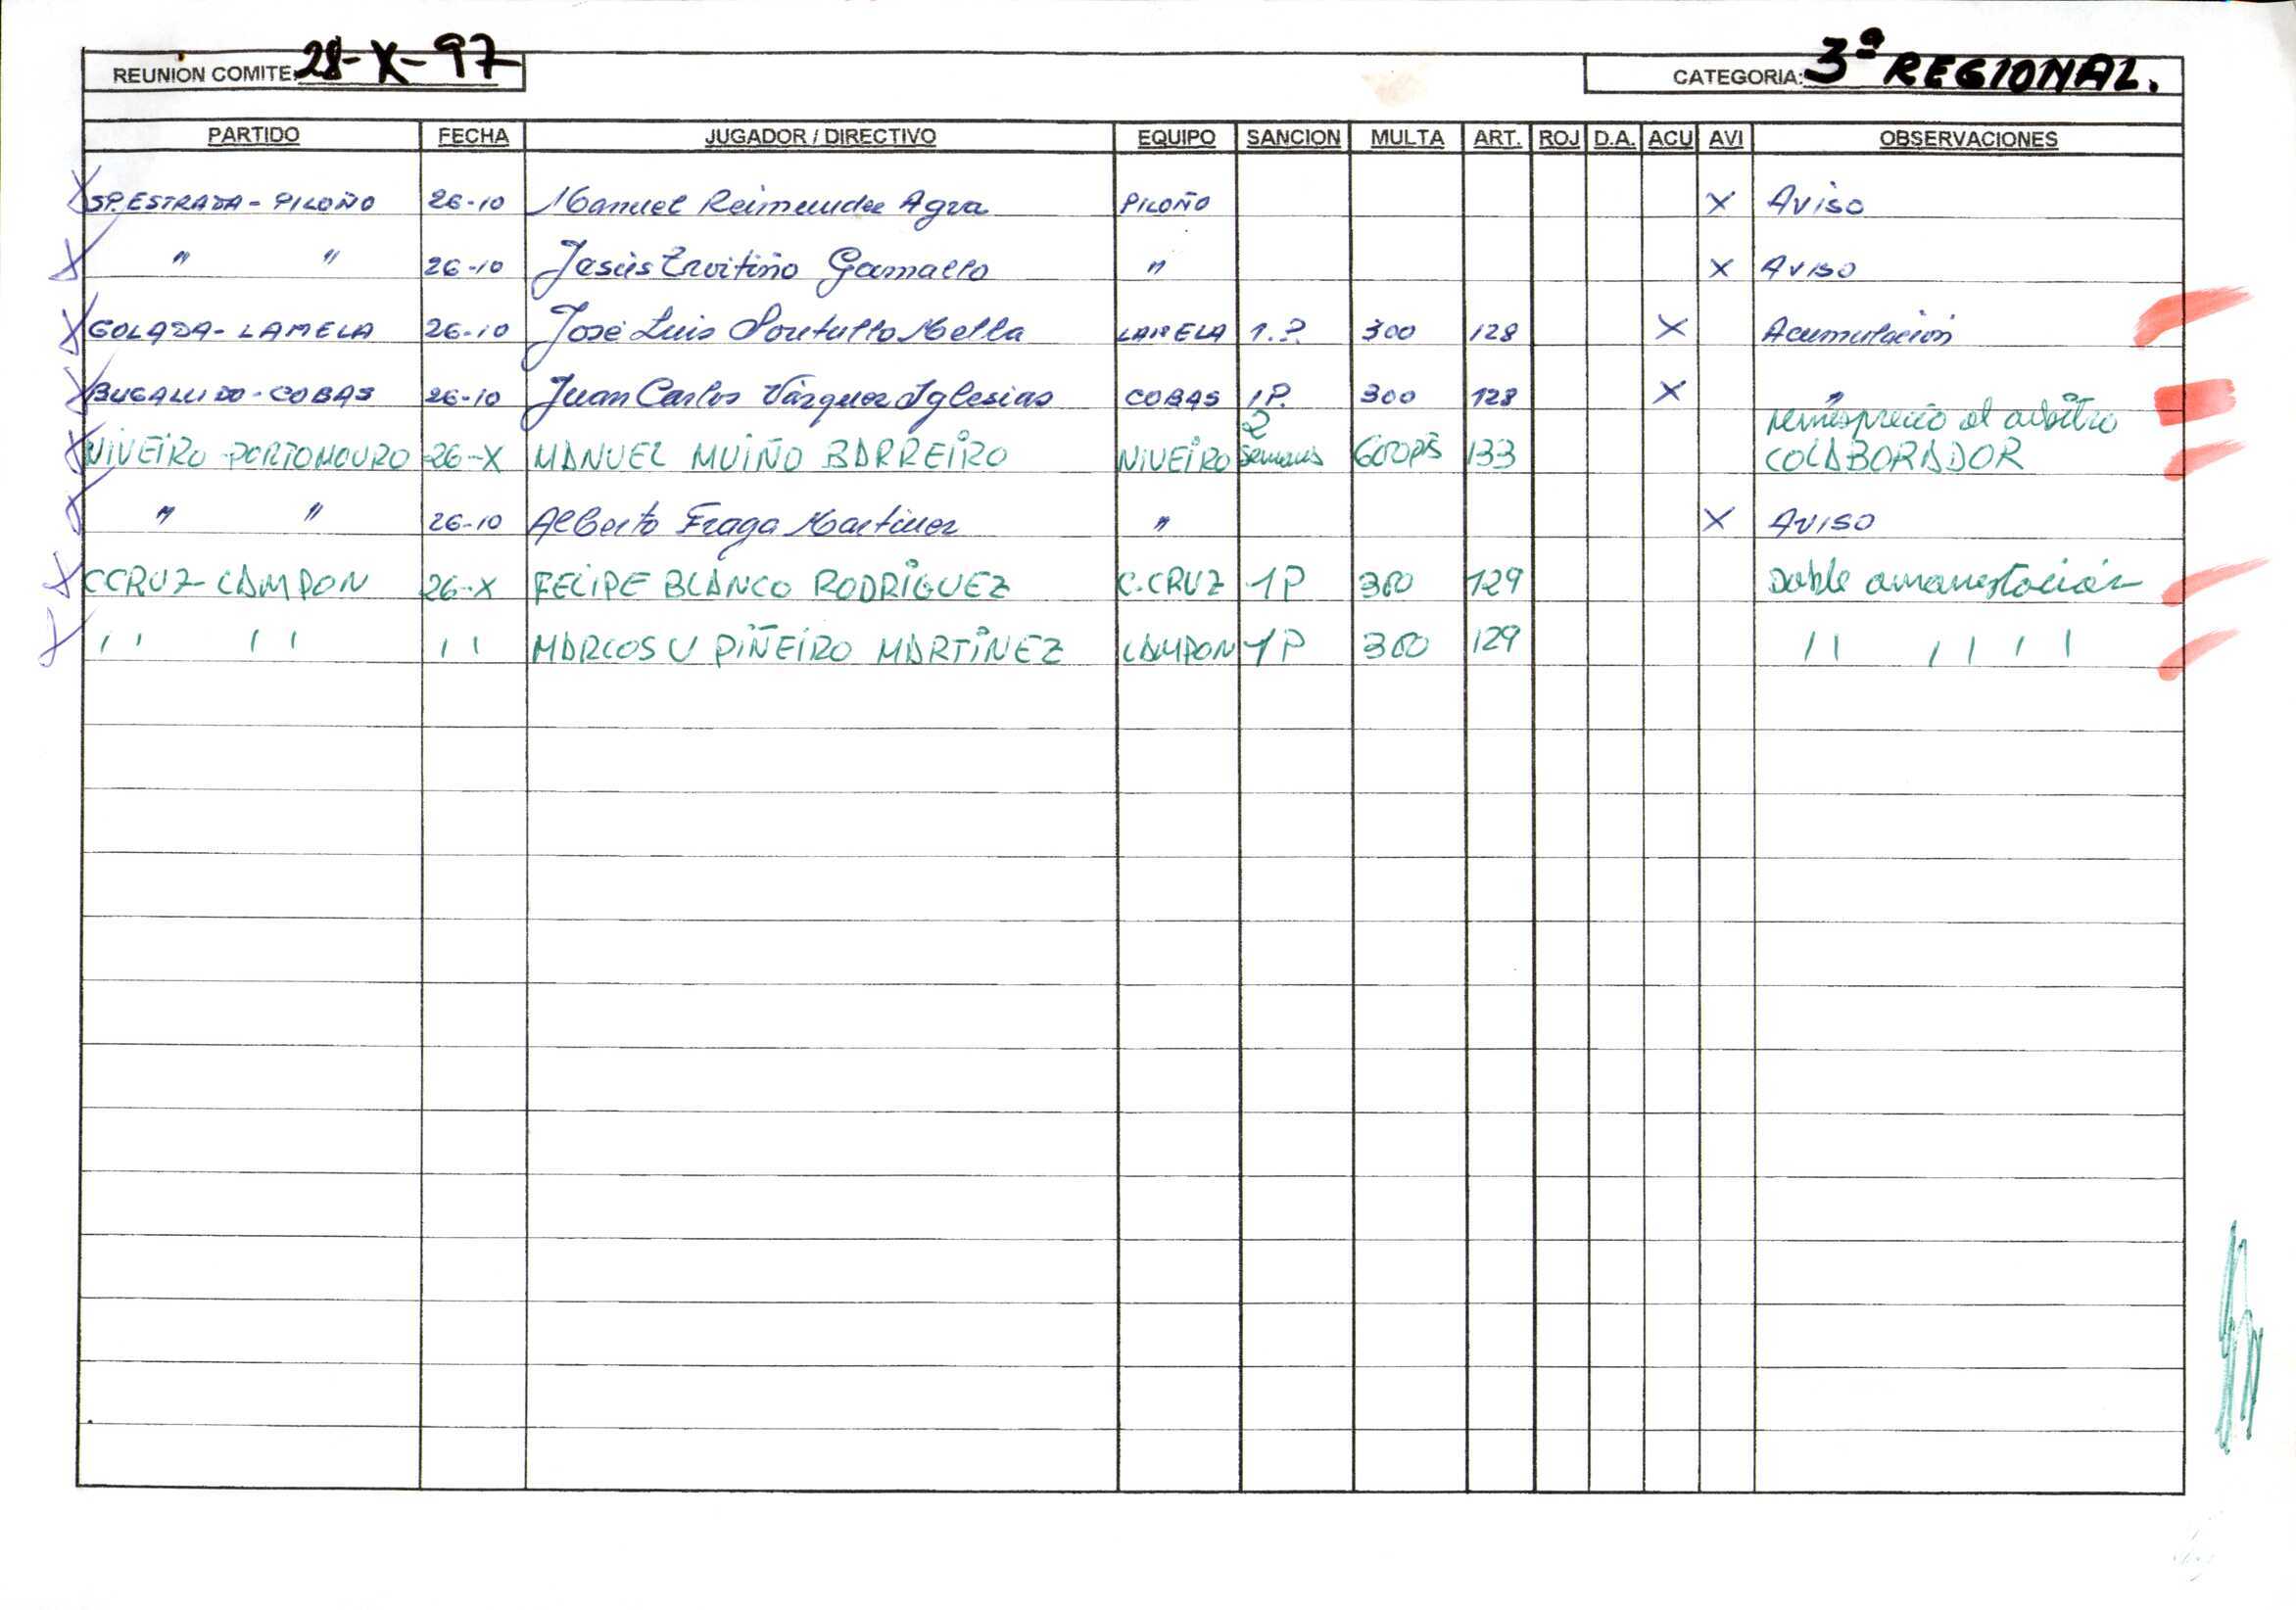 REUNION COMITE: 28-X-97 CATEGORIA: 3ª REGIONAL.
PARTIDO FECHA JUGADOR / DIRECTIVO EQUIPO SANCION MULTA ART. ROJ D.A. ACU AVI OBSERVACIONES
SP.ESTRADA - PILOÑO 26-10 Manuel Reimundez Agra PILOÑO X Aviso
" " 26-10 Jesús Gamallo " X Aviso
GOLADA - LAMELA 26-10 José Luis Soutullo Mella LAMELA 1.P. 300 128 X Acumulación
BUGALLIDO - COBAS 26-10 Juan Carlos Vázquez Iglesias COBAS 1P. 300 128 X "
NIVEIRO - PORTOMOURO 26-X MANUEL MUIÑO BARREIRO NIVEIRO 2 semanas 600pts 133 menosprecio al arbitro
COLABORADOR
" " 26-10 Alberto Fraga Martinez " X AVISO
CCRUZ - CAMPON 26-X FELIPE BLANCO RODRÍGUEZ C.CRUZ 1P 300 129 Doble amonestación
" " " MARCOS V PIÑEIRO MARTÍNEZ CAMPON 1P 300 129 " " "